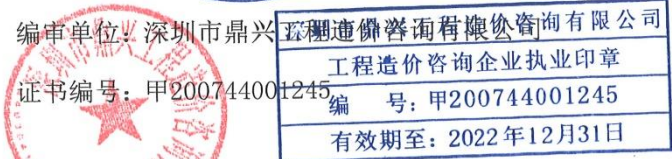 编审单位：深圳市鼎兴工程造价咨询有限公司
证书编号：甲200744001245
深圳市鼎兴工程造价咨询有限公司
工程造价咨询企业执业印章
编　号：甲200744001245
有效期至：2022年12月31日